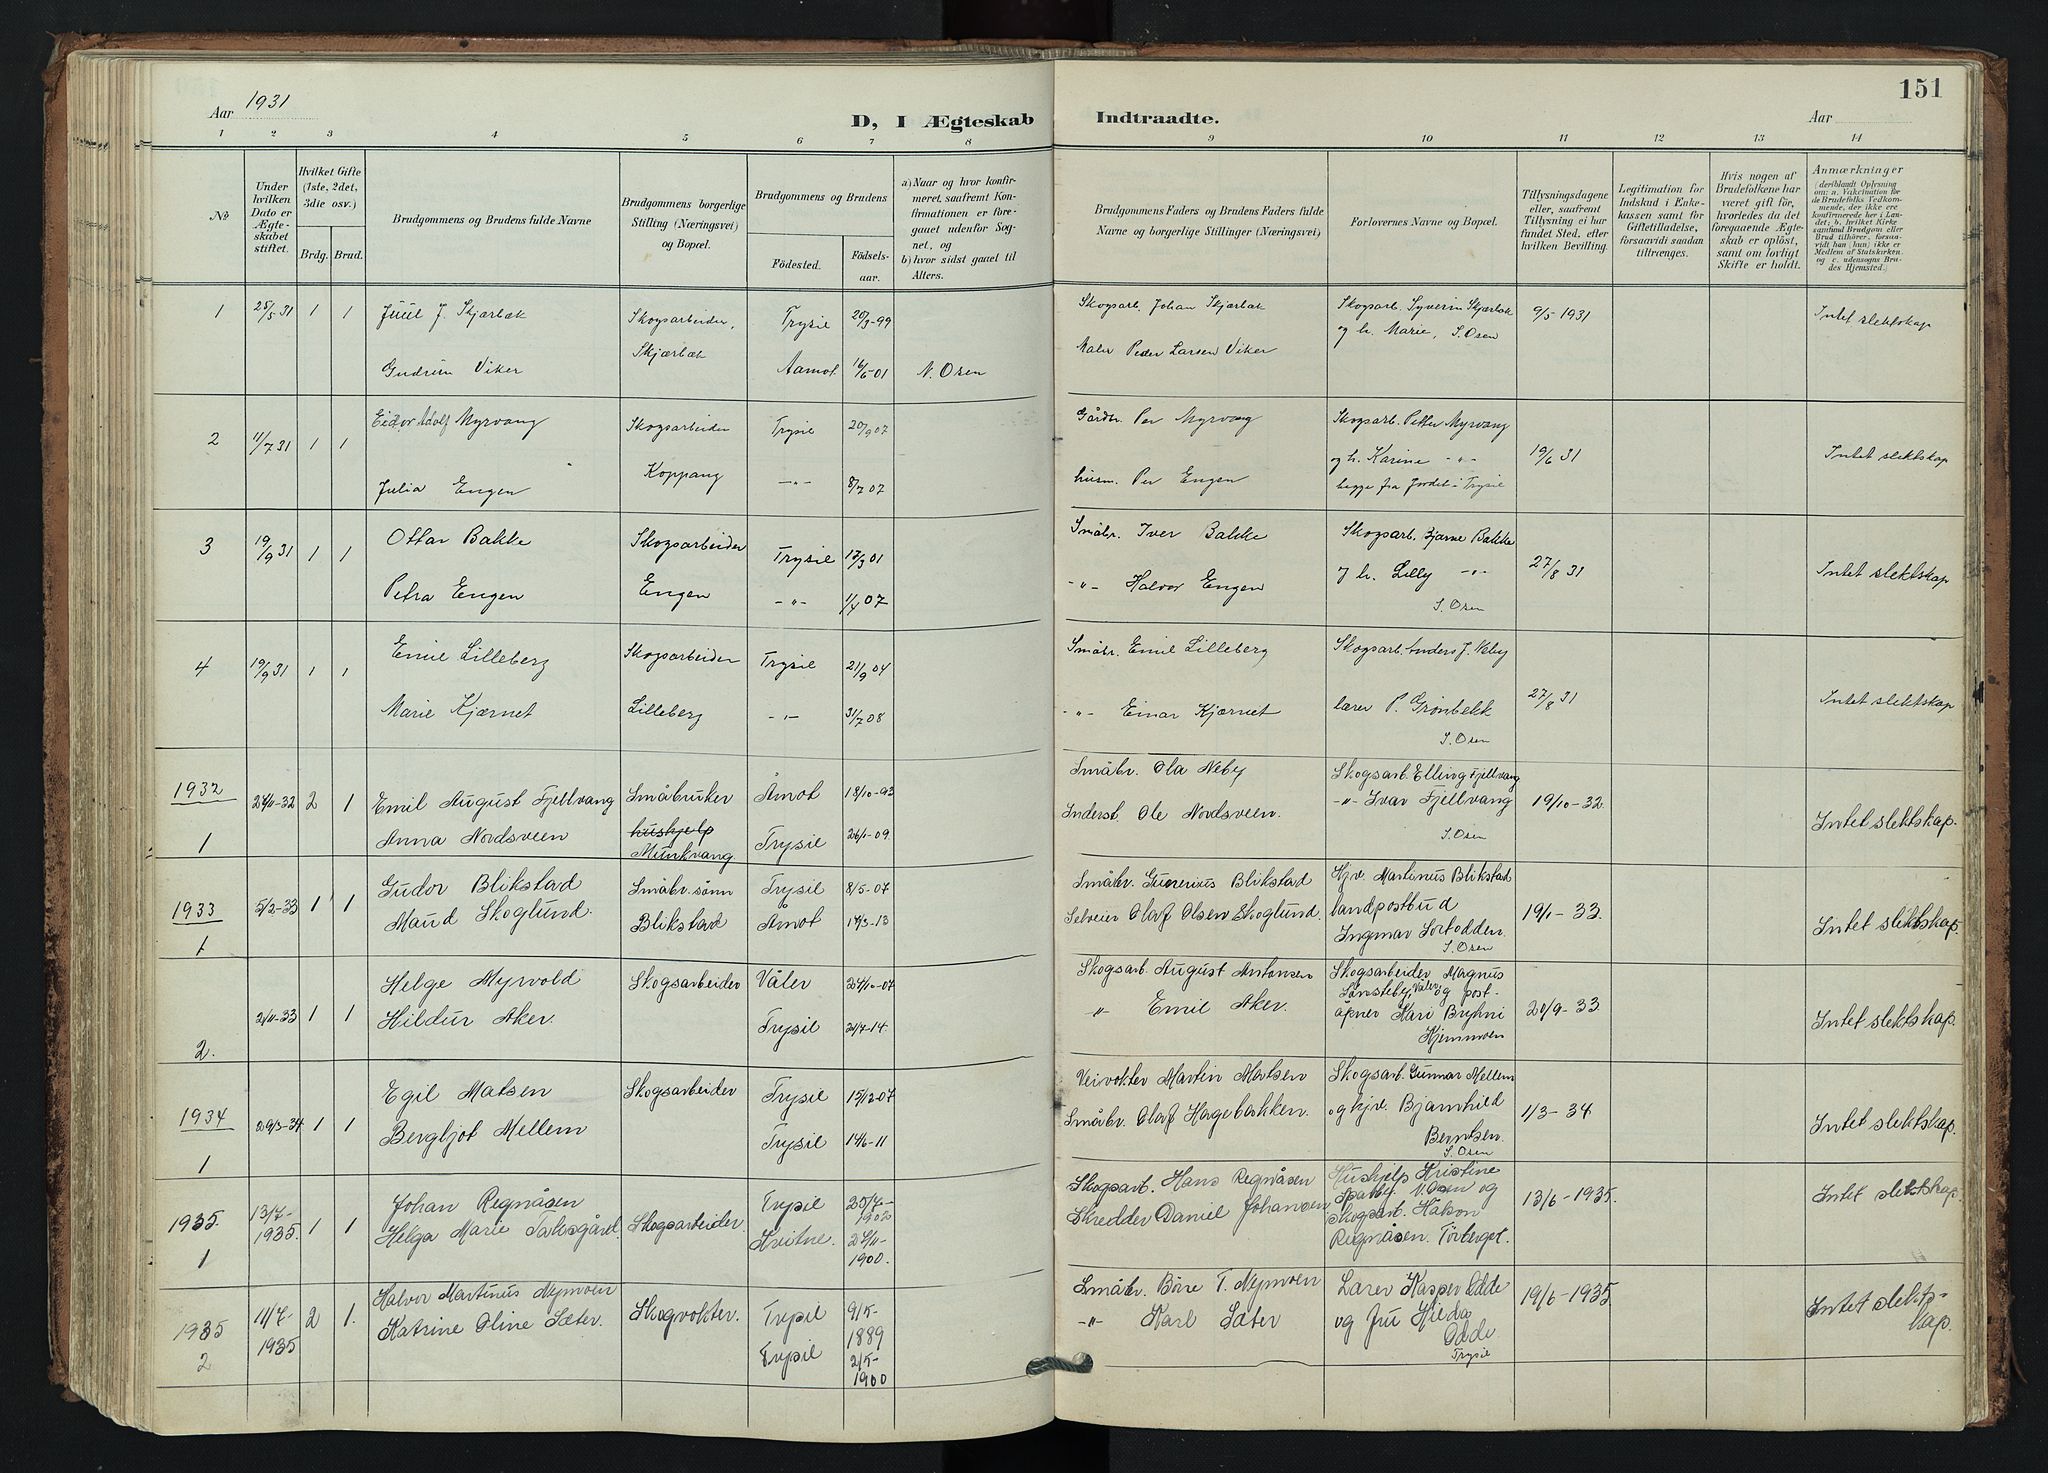 151
Aar 1931
D, I Ægteskab Indtraadte.
Aar
1 2 3 4 5 6 7 8 9 10 11 12 13 14
No
Under hvilken Dato er Ægteskabet stiftet.
Hvilket Gifte (1ste, 2det, 3die osv.)
Brdg. Brud.
Brudgommens og Brudens fulde Navne
Brudgommens borgerlige Stilling (Næringsvei) og Bopæl.
Brudgommens og Brudens
Födested.
Födselsaar.
a) Naar og hvor konfirmeret, saafremt Konfirmationen er foregaaet udenfor Sognet, og
b) hvor sidst gaaet til Alters.
Brudgommens Faders og Brudens Faders fulde Navne og borgerlige Stillinger (Næringsvei)
Forlovernes Navne og Bopæl.
Tillysningsdagene eller, saafremt Tillysning ei har fundet Sted, efter hvilken Bevilling.
Legitimation for Indskud i Enkekassen samt for Giftetilladelse, forsaavidt saadan tiltrænges.
Hvis nogen af Brudefolkene har været gift för, hvorledes da det foregaaende Ægteskab er oplöst, samt om lovligt Skifte er holdt.
Anmærkninger (deriblandt Oplysning om: a. Vakcination för de Brudefolks Vedkommende, der ikke ere konfirmerede her i Landet; b. hvilket Kirkesamfund Brudgom eller Brud tilhører, forsaavidt han (hun) ikke er Medlem af Statskirken, og c. udensogns Brudes Hjemsted.)
1 25/5 31 1 1 Juul J. Skjærbæk Skogsarbeider, Trysil 20/3-99 Skogsarb. Johan Skjærbæk Skogsarb. Syverin Skjærbæk 9/5-1931 Intet slektskap
Skjærbæk og h. Marie, S. Osen
Gudrun Viker Aamot 16/6-01 N. Osen Maler Peder Larsen Viker
2 11/7 31 1 1 Eidor Adolf Myrvang Skogsarbeider Trysil 20/9 07 Gårdbr. Per Myrvang Skogsarb. Petter Myrvang 19/6 31 Intet slektskap
Koppang og h. Karine -"-
Julia Engen -"- 8/7 07 husm. Per Engen begge fra Jordet i Trysil
3 19/9 31 1 1 Ottar Bakke Skogsarbeider Trysil 17/3 01 Småbr. Iver Bakke Skogsarb. Bjarne Bakke 27/8 31 Intet slektskap
Petra Engen Engen -"- 1/4 07 -"- Halvor Engen og h. Lilly -"-
S. Osen
4 19/9 31 1 1 Emil Lilleberg Skogsarbeider Trysil 21/9 04 Småbr. Emil Lilleberg Skogsarb. Anders J. Neby 27/8 31 Intet slektskap
Marie Kjærnet Lilleberg -"- 31/7 08 -"- Einar Kjærnet lærer P. Grønbekk
S. Osen
1932 24/11-32 2 1 Emil August Fjellvang Småbruker Åmot 18/10-93 Småbr. Ola Neby Skogsarb. Elling Fjellvang 19/10-32 Intet slektskap.
1 Anna Nordsveen huskjelp Munkvang. Trysil 26/1-09. Inderst. Ole Nordsveen. -"- Ivar Fjellvang
S. Osen
1933 5/2-33 1 1 Gudor Blikstad Småbr. sønn Trysil 8/5-07 Småbr. Gunerius Blikstad Hjv. Martinus Blikstad 19/1-33. Intet slektskap.
1. Maud Skoglund. Blikstad Åmot 14/3-13 Selveier Olaf Olsen Skoglund. landpostbud
Ingmar Sortodden.
S. Osen
2. 2/11-33 1 1 Helge Myrvold Skogsarbeider Våler 24/10-07 Skogsarb. August Antonsen Skogsarbeider Magnus 20/9-33. Intet slektskap.
Hildur Aker. Trysil 21/7-14. " Emil Aker. Sønsteby, Våler og poståpner Kari Bryhni
Hjemmoen
1934 29/3-34 1 1 Egil Matsen Skogsarbeider Trysil 15/12-07 Veivokter Martin Matsen Skogsarb. Gunnar Mellem 1/3-34. Intet slektskap.
1 Bergljot Mellem Trysil 14/6-11 Småbr. Olaf Hagebakken. og hjv. Bjarnhild
Berntsen.
S. Osen
1935. 13/7-1935. 1 1 Johan Regnåsen Skogsarbeider. Trysil 25/7-1902 Skogsarb. Hans Regnåsen Hushjelp Kristine 13/6-1935. Intet slektskap
1 Helga Marie Taksgård. Kvitne. 24/11-1900. Skredder Daniel Johansen N. Osen og
Skogsarb. Håkon
Regnåsen. Tørberget.
1935 11/7-1935 2 1. Halvor Martinus Nymoen Skogvokter. Trysil 9/5-1889 Småbr. Børe T. Nymoen Lærer Kasper Odde 19/6-1935 Intet slektskap.
2 Katrine Oline Sæter. Trysil 2/5-1900 -"- Karl Sæter og fru Hilda
Odde.
Trysil